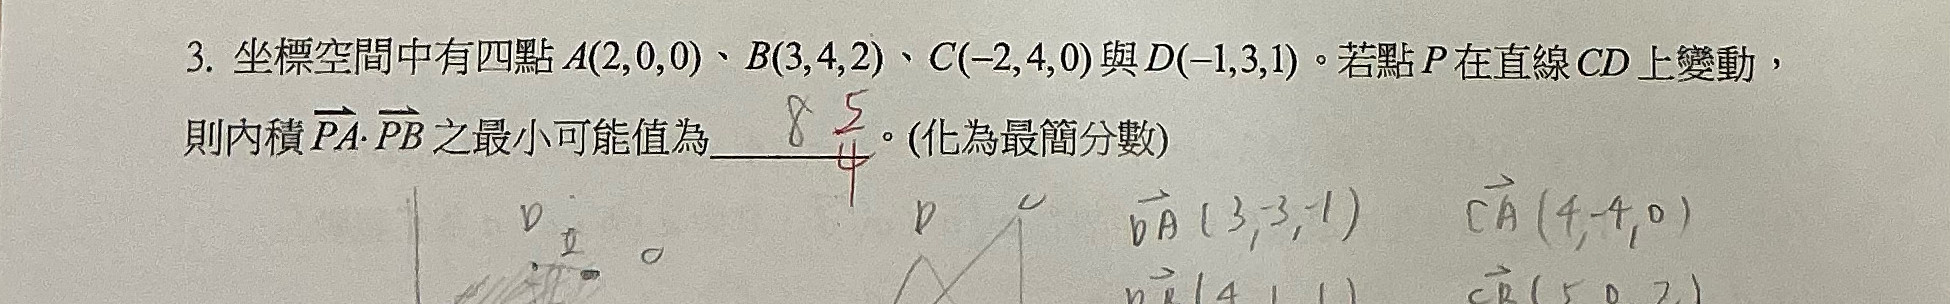 3. 坐標空間中有四點 A(2,0,0)、B(3,4,2)、C(−2,4,0)與D(−1,3,1)。若點P在直線CD上變動，
則內積 $\overrightarrow{PA}\cdot\overrightarrow{PB}$ 之最小可能值為 8 5/4 。(化為最簡分數)
D D C $\overrightarrow{DA}$ (3,-3,-1) $\overrightarrow{CA}$ (4,-4,0)
$\overrightarrow{DB}$ (4, 1, 1) $\overrightarrow{CB}$ (5, 0, 2)